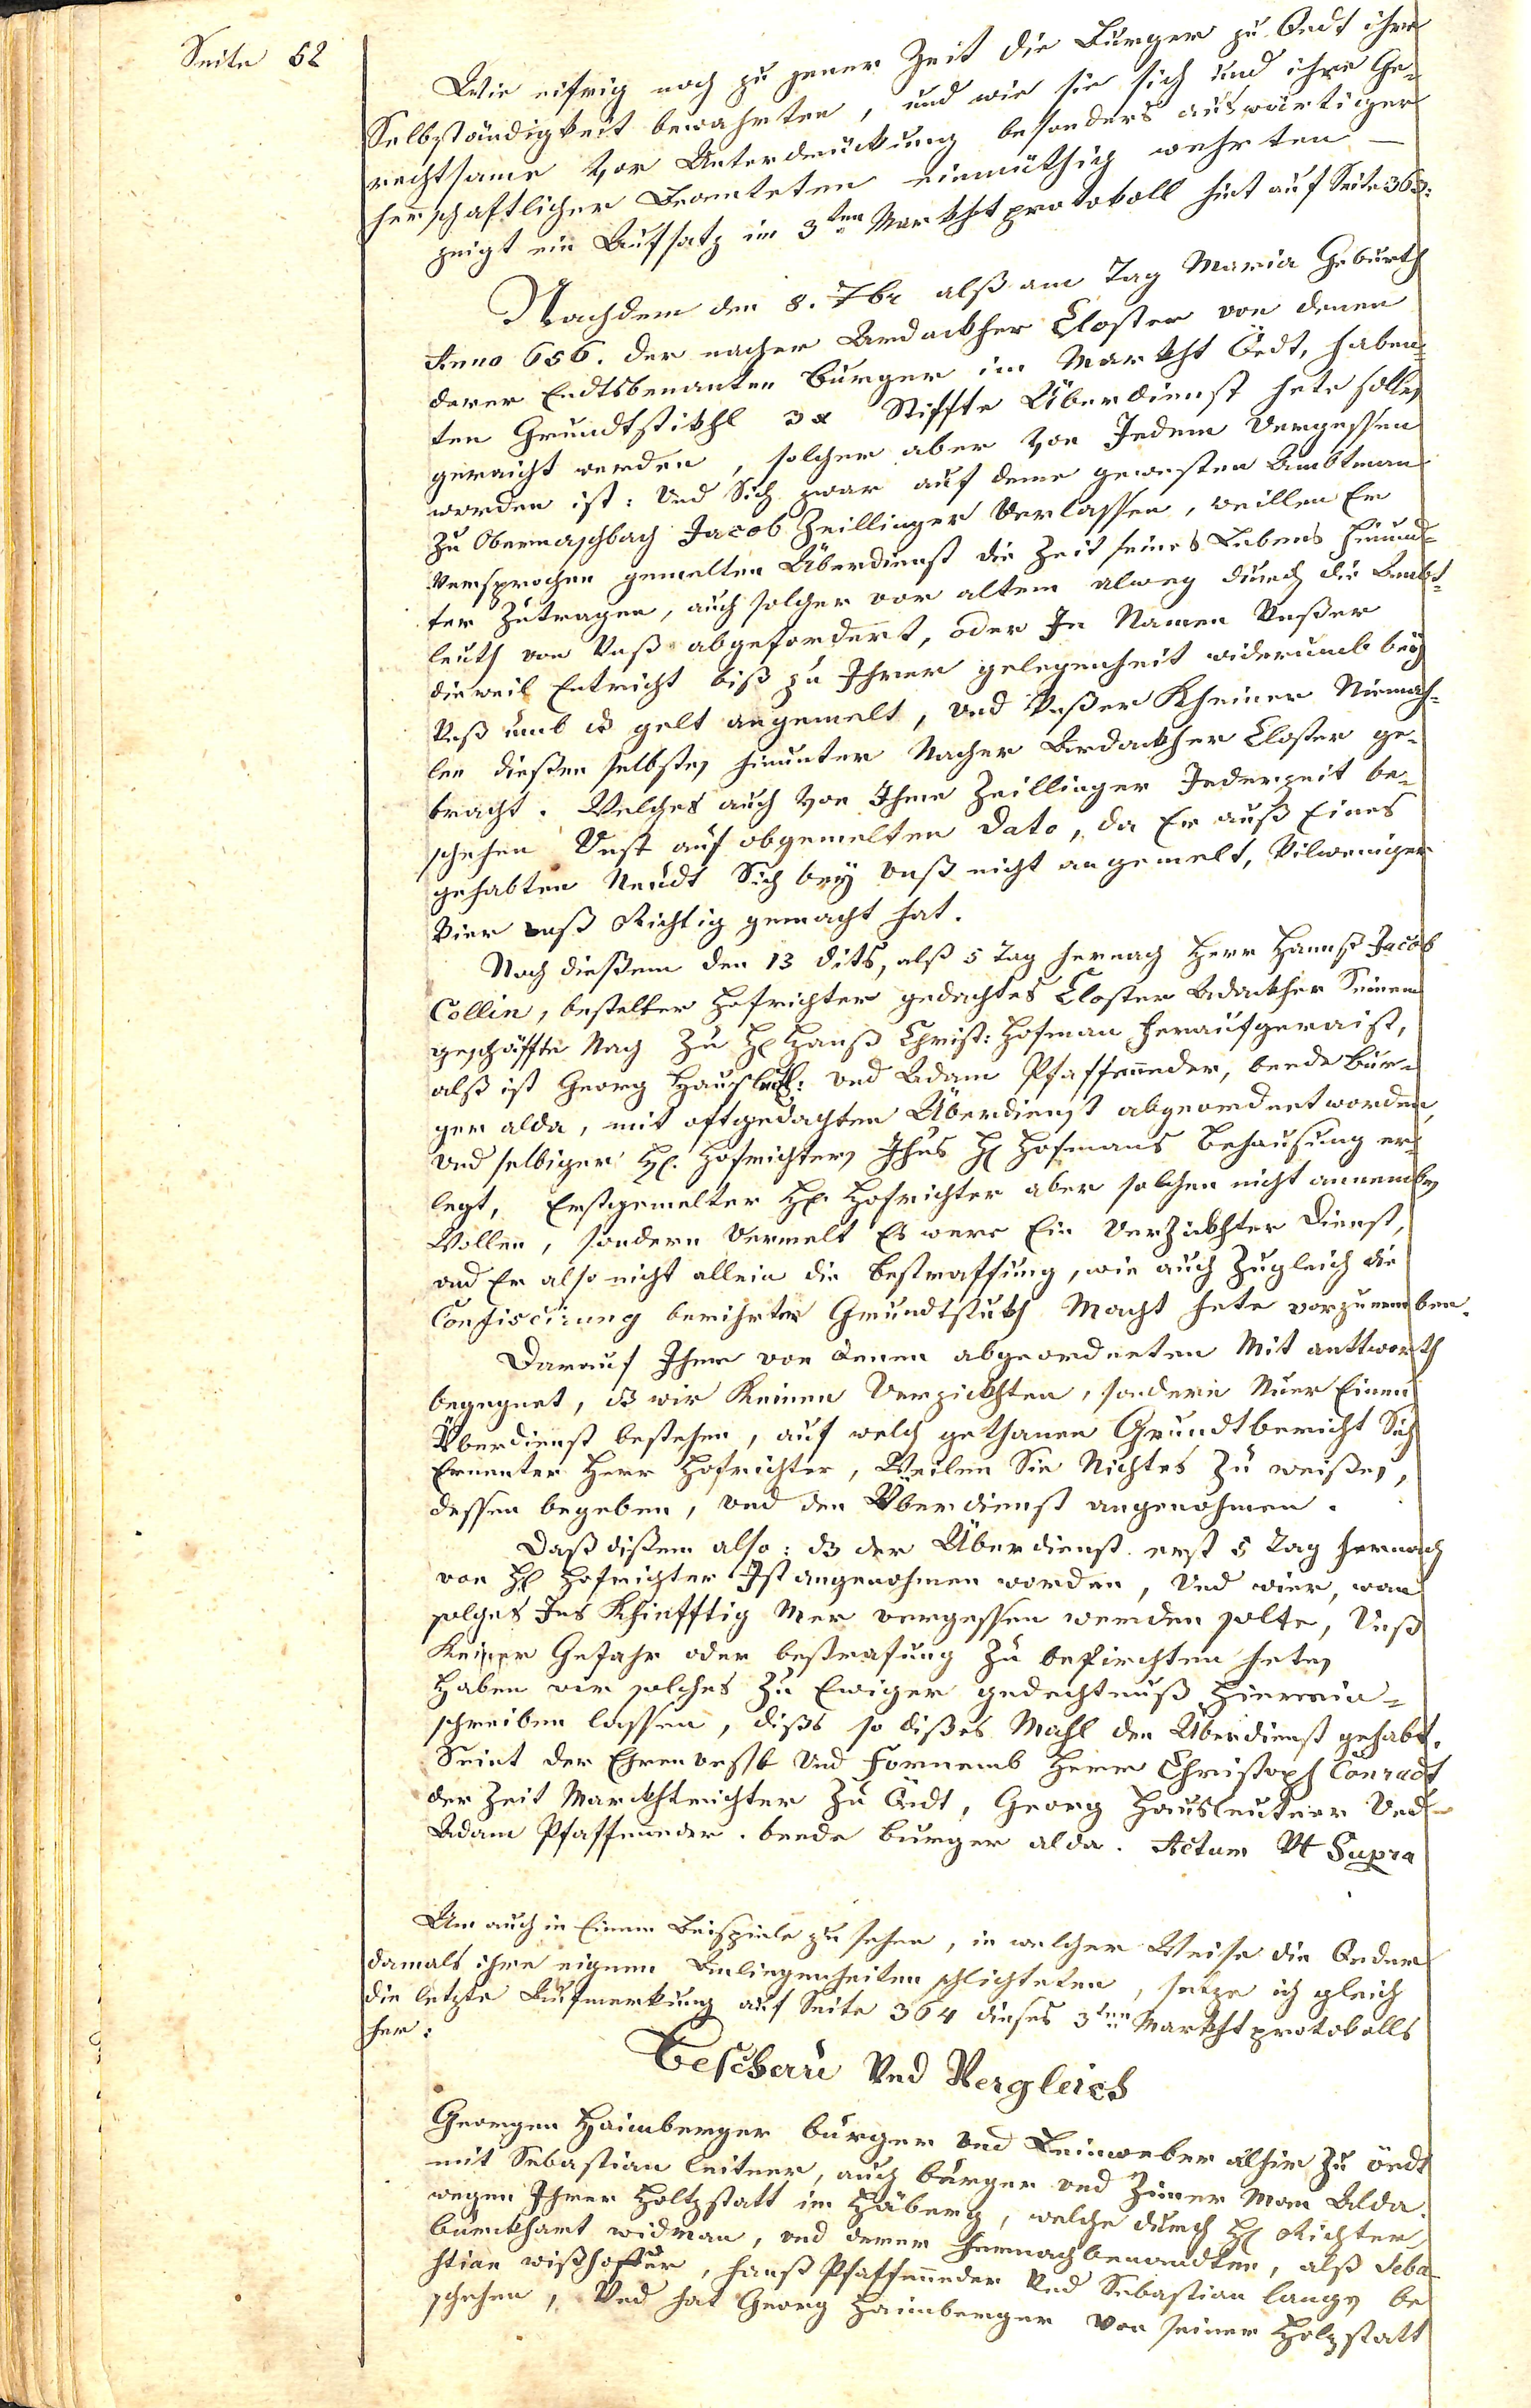 Seite 52
Wie eifrig noch zu jener Zeit die Bürger zu Oedt ihre
Selbständigkeit bewahrten, und wie sie sich und ihre Ge-
rechtsame vor Unterdrückung besonders auswärtiger
herrschaftlicher Beamteten einmüthig wehrten –
zeigt ein Aufsatz im 3ten Markhtprotokoll hint auf Seite 363:
Nachdem den 8. 7br alß am Tag Maria Geburth
Anno 656. der nacher Ardackher Closter von denen
derer Endtsbenanten Burger im Markht Öedt, haben-
ten Grundtstükhl 3 Stiffte Überdienst hete sollen
geraicht werden, solcher aber von Jedem Vergessen
worden ist: Und Sich zwar auf deme gewesten Ambtman
zu Oberaschbach Jacob Zeillinger Verlassen, weillen Er
Versprochen gemelten Überdienst die Zeit seines Lebens hinund-
ter Zutragen, auch solcher vor altem alweg durch die Ambt-
leuth von Unß abgefordert, oder In Namen Unßer
dieweil Entricht biß zu Ihrer gelegenheit widerumb bey
Unß umb ds gelt angemelt, und Unßer Kheiner Niemah-
len dießen selbsten hinunter Nacher Ardackher Closter ge-
bracht. Welches auch von Ihme Zeillinger Jederzeit be-
schehen Unst auf obgemelten Dato, da Er auß Eines
gehabten Neudt Sich bey Unß nicht angemelt, Vilweniger
Vier Unß Richtig gemacht hat.
Nach dießem den 13 dits, alß 5 Tag hernach Herr Hannß Jacob
Collin, bestelter Hofrichter gedachtes Closter Adackher Seinem
geschäffte Nach Zu H Hanß Christ: Hofman heraufgeraist,
alß ist Georg und Adam Pfaffeneder, beede Bür-
ger alda, mit oftgedachten Überdienst abgeordnet worden,
und selbiger H. Hofrichtern Ihns H Hofmans Behausung er-
legt, Erstgemelter H. Hofrichter aber solchen nicht annemben
Wollen, sondern Vermelt Es were Ein Verzickhter Dienst,
und Er also nicht allein die Bestraffung, wie auch Zugleich die
Confiscirung berihrter Grundtstukh Macht hete vorzunemben.
Darauf Ihme von denen abgeordneten Mit anttworth
begegnet, ds wir Keinen Verzickhten, sondern Nuer Einen
Überdienst bestehen, auf welch gethanen Grundtbericht Sich
Ernenter Herr Hofrichter, Weilen Sie Nichtes Zu weißen,
dessen begeben, und den Überdienst angenohmen.
Daß dißem also: ds der Überdienst erst 5 Tag hernach
von H Hofrichter Ist angenohmen worden, Und wier, wan
solches Ins Khinfftig Mer vergessen werden solte, Unß
Keiner Gefahr oder bestrafung Zu befirchten heten
Haben wir solches Zu Ewiger gedechtnuß hierein-
schreiben lassen, dißs so dißes Mahl den Überdienst gehabt.
Seint der Ehrenvesst Und Fornemb Herr Christoph Conradt
der Zeit Marckhtrichter Zu Öedt, Georg Hausleutner Und
Adam Pfaffeneder. beede burger alda. Actum Vt Supra
Um auch in Einem Beispiele zu sehen, in welcher Weise die Oeder
damals ihre eignen Anliegenheiten schlichteten, setze ich gleich
die letzte Aufmerkung auf Seite 364 dieses 3ten Markhtprotokolls
her:
Beschau Und Vergleich
Georgen Haimberger bürger und Leinweber alhie Zu öedt
mit Sebastian leitner, auch bürger und Zimer Man Alda.
wegen Ihrer Holtzstatt im Häberg, welche durch H Richter
burckhart widman, und derer hernach benandten, alß Seba-
stian wißhofer, hanß Pfaffeneder Und Sebastian langen be
schehen, Und hat Georg Haimberger von seiner Holzstatt